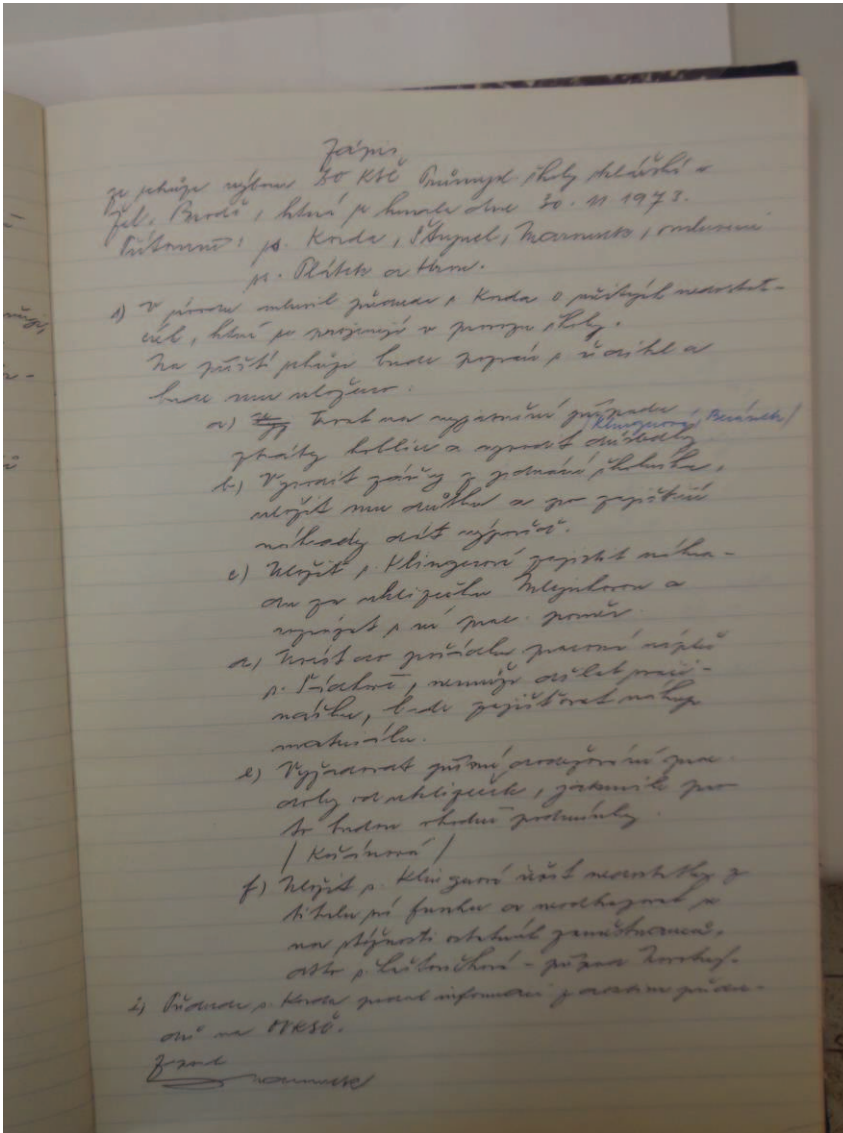 Zápis
ze schůze výboru ZO KSČ Průmysl. školy sklářské v
Žel. Brodě, která se konala dne 30. 11 1973.
Přítomni: ss. Korda, Štrympl, omluveni
ss. Plátek a
1) V úvodu mluvil předseda s. Korda o určitých nedostat-
cích, které se projevují v provozu školy.
Na příští schůzi bude pozván s. ředitel a
bude mu uloženo:
a) Trvat na vyjasnění případu /Klingerová, Beránek/
ztráty koblic a vyvodit důsledky
b) Vyvodit závěry z jednání školníka,
uložit mu důtku a pro zajištění
náhrady dát výpověď.
c) Uložit s. Klingerové zajistit náhra-
du za uklizečku a
s ní prac. poměr.
d) Uvést do pořádku pracovní náplň
s. , nemůže dělat
, bude zajišťovat nákup
materiálu.
e) Vyžadovat přísné dodržování prac.
doby od uklizeček, jakmile pro
to budou vhodné podmínky.
/ Kočínová /
f) Uložit s. Klingerové řešit nedostatky z
titulu své funkce a neodkazovat se
na stížnosti ostatních zaměstnanců.
- případ
2) Předseda s. Korda podal informaci z předse-
dů na OVKSČ.
Zapsal